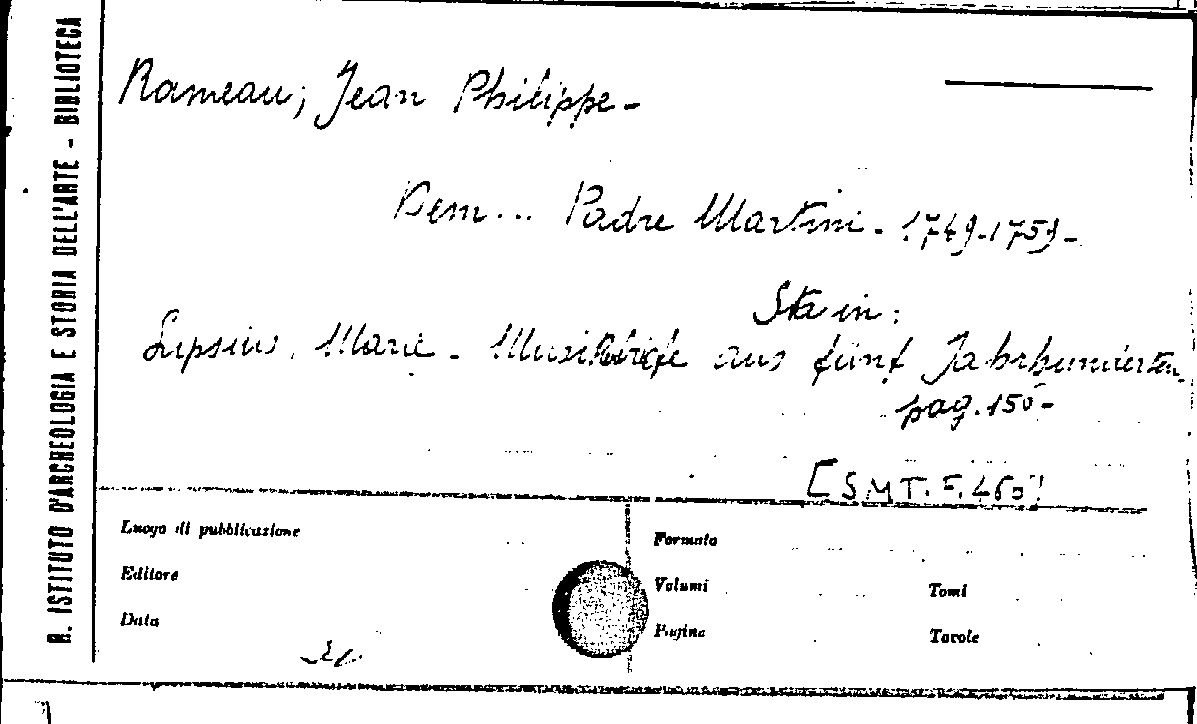 R. ISTITUTO D'ARCHEOLOGIA E STORIA DELL'ARTE - BIBLIOTECA
Rameau, Jean Philippe -
Dem... Padre Martini - 1749-1759 -
Sta in:
Lipsius, Marie - Musikbriefe aus fünf Jahrhunderten
pag. 150 -
[S.M T. F. 460]
Luogo di pubblicazione
Formato
Editore
Volumi
Tomi
Data
Pagine
Tavole